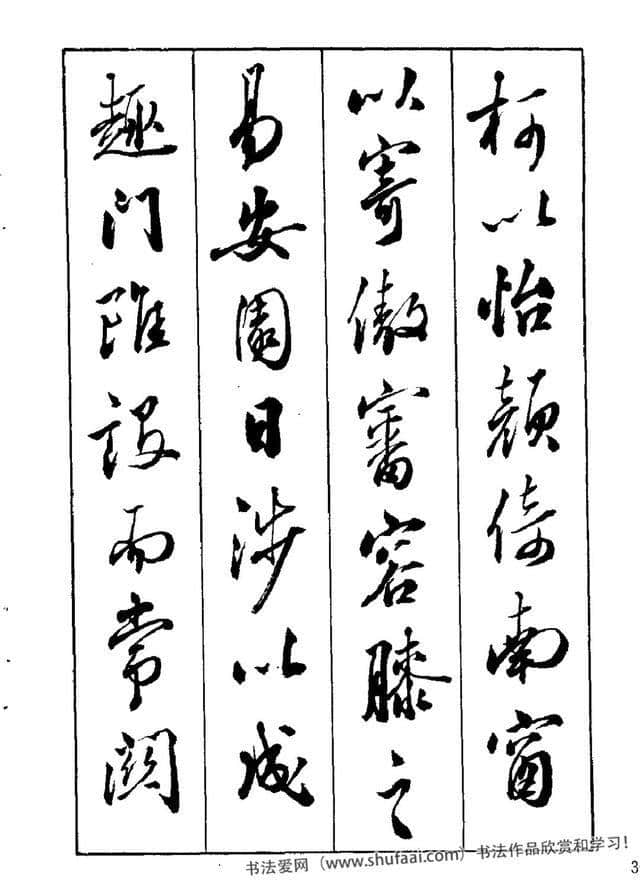 柯以怡颜倚南窗
以寄傲審容膝之
易安園日涉以成
趣门雖設而常関
书法爱网（www.shufaai.com）书法作品欣赏和学习！
3